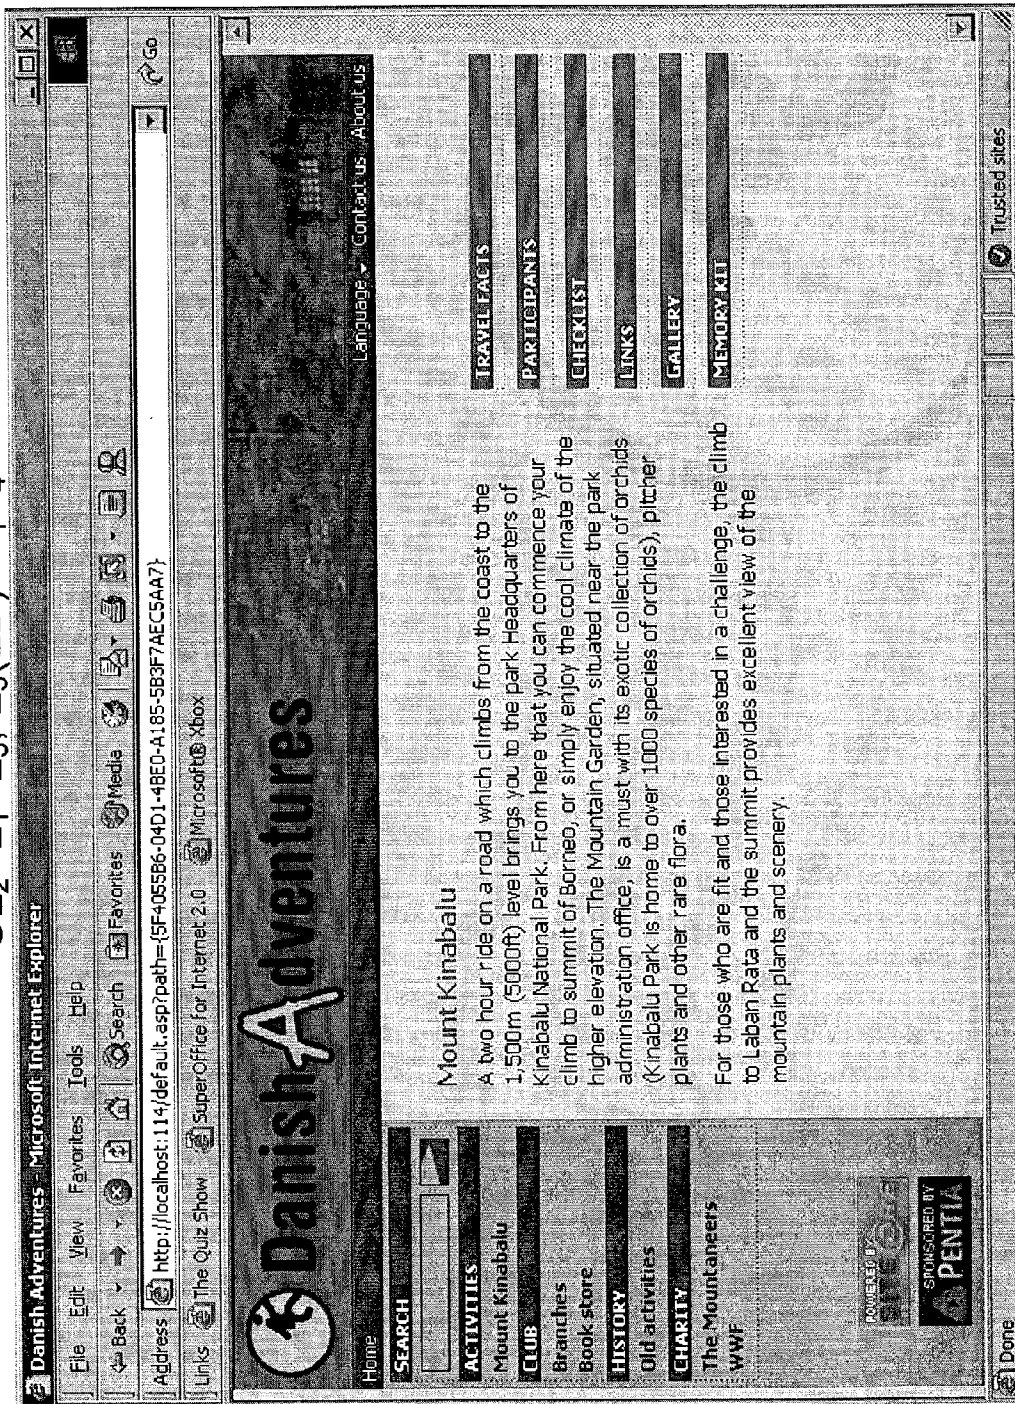 Danish Adventures - Microsoft Internet Explorer
File Edit View Favorites Tools Help
Back Search Favorites Media
Address http://localhost:114/default.asp?path={5F4055B6-04D1-4BE0-A185-5B3F7AEC5AA7} Go
Links The Quiz Show SuperOffice for Internet 2.0 Microsoft® Xbox
Danish Adventures
Home Language Contact us About us
SEARCH
ACTIVITIES
Mount Kinabalu
CLUB
Branches
Book store
HISTORY
Old activities
CHARITY
The Mountaneers
WWF
POWERED BY
SITECORE
SPONSORED BY
PENTIA
Mount Kinabalu
A two hour ride on a road which climbs from the coast to the
1,500m (5000ft) level brings you to the park Headquarters of
Kinabalu National Park. From here that you can commence your
climb to summit of Borneo, or simply enjoy the cool climate of the
higher elevation. The Mountain Garden, situated near the park
administration office, is a must with its exotic collection of orchids
(Kinabalu Park is home to over 1000 species of orchids), pitcher
plants and other rare flora.
For those who are fit and those interested in a challenge, the climb
to Laban Rata and the summit provides excellent view of the
mountain plants and scenery.
TRAVEL FACTS
PARTICIPANTS
CHECKLIST
LINKS
GALLERY
MEMORY KIT
Done Trusted sites